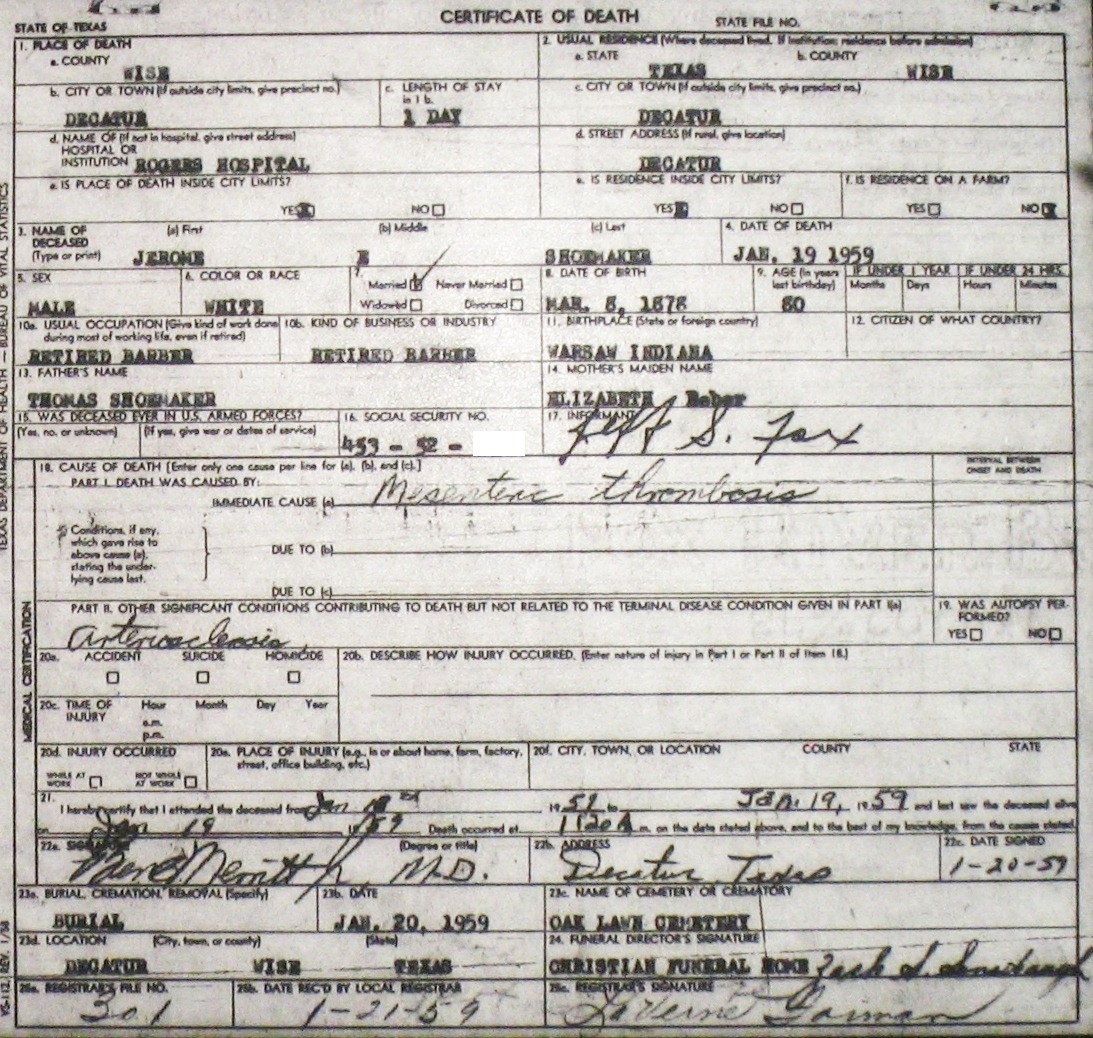 CERTIFICATE OF DEATH
STATE OF TEXAS STATE FILE NO.
1. PLACE OF DEATH
a. COUNTY
WISE
2. USUAL RESIDENCE (Where deceased lived. If institution: residence before admission)
a. STATE b. COUNTY
TEXAS WISE
b. CITY OR TOWN (If outside city limits, give precinct no.)
DECATUR
c. LENGTH OF STAY
in 1 b.
1 DAY
c. CITY OR TOWN (If outside city limits, give precinct no.)
DECATUR
d. NAME OF (If not in hospital, give street address)
HOSPITAL OR
INSTITUTION ROGERS HOSPITAL
d. STREET ADDRESS (If rural, give location)
DECATUR
e. IS PLACE OF DEATH INSIDE CITY LIMITS?
YES NO
e. IS RESIDENCE INSIDE CITY LIMITS?
YES NO
f. IS RESIDENCE ON A FARM?
YES NO X
3. NAME OF
DECEASED
(Type or print)
(a) First (b) Middle (c) Last
JEROME E SHOEMAKER
4. DATE OF DEATH
JAN. 19 1959
5. SEX
MALE
6. COLOR OR RACE
WHITE
7.
Married Never Married
Widowed Divorced
8. DATE OF BIRTH
MAR. 8, 1878
9. AGE (In years
last birthday)
80
IF UNDER 1 YEAR IF UNDER 24 HRS.
Months Days Hours Minutes
10a. USUAL OCCUPATION (Give kind of work done
during most of working life, even if retired)
RETIRED BARBER
10b. KIND OF BUSINESS OR INDUSTRY
RETIRED BARBER
11. BIRTHPLACE (State or foreign country)
WARSAW INDIANA
12. CITIZEN OF WHAT COUNTRY?
13. FATHER'S NAME
THOMAS SHOEMAKER
14. MOTHER'S MAIDEN NAME
ELIZABETH Reber
15. WAS DECEASED EVER IN U.S. ARMED FORCES?
(Yes, no, or unknown) (If yes, give war or dates of service)
16. SOCIAL SECURITY NO.
453 - 52 -
17. INFORMANT
Jeff S. Fox
18. CAUSE OF DEATH [Enter only one cause per line for (a), (b), and (c).]
PART I. DEATH WAS CAUSED BY:
IMMEDIATE CAUSE (a) Mesenteric thrombosis
INTERVAL BETWEEN
ONSET AND DEATH
Conditions, if any,
which gave rise to
above cause (a),
stating the under-
lying cause last.
DUE TO (b)
DUE TO (c)
PART II. OTHER SIGNIFICANT CONDITIONS CONTRIBUTING TO DEATH BUT NOT RELATED TO THE TERMINAL DISEASE CONDITION GIVEN IN PART I(a)
Arteriosclerosis
19. WAS AUTOPSY PER-
FORMED?
YES NO
20a.
ACCIDENT SUICIDE HOMICIDE
20b. DESCRIBE HOW INJURY OCCURRED. (Enter nature of injury in Part I or Part II of Item 18.)
20c. TIME OF
INJURY
Hour Month Day Year
a.m.
p.m.
20d. INJURY OCCURRED
WHILE AT
WORK
NOT WHILE
AT WORK
20e. PLACE OF INJURY (e.g., in or about home, farm, factory,
street, office building, etc.)
20f. CITY, TOWN, OR LOCATION COUNTY STATE
21.
I hereby certify that I attended the deceased from Jan 1959 to Jan. 19, 1959 and last saw the deceased alive
on Jan 19 1959 Death occurred at 1120 A.m. on the date stated above, and to the best of my knowledge, from the causes stated.
22a. SIGNATURE (Degree or title)
Merritt M.D.
22b. ADDRESS
Decatur, Texas
22c. DATE SIGNED
1-20-59
23a. BURIAL, CREMATION, REMOVAL (Specify)
BURIAL
23b. DATE
JAN. 20, 1959
23c. NAME OF CEMETERY OR CREMATORY
OAK LAWN CEMETERY
23d. LOCATION (City, town, or county) (State)
DECATUR WISE TEXAS
24. FUNERAL DIRECTOR'S SIGNATURE
CHRISTIAN FUNERAL HOME
25a. REGISTRAR'S FILE NO.
301
25b. DATE REC'D BY LOCAL REGISTRAR
1-21-59
25c. REGISTRAR'S SIGNATURE
LaVerne Gorman
TEXAS DEPARTMENT OF HEALTH — BUREAU OF VITAL STATISTICS
MEDICAL CERTIFICATION
VS-112, REV. 1/58